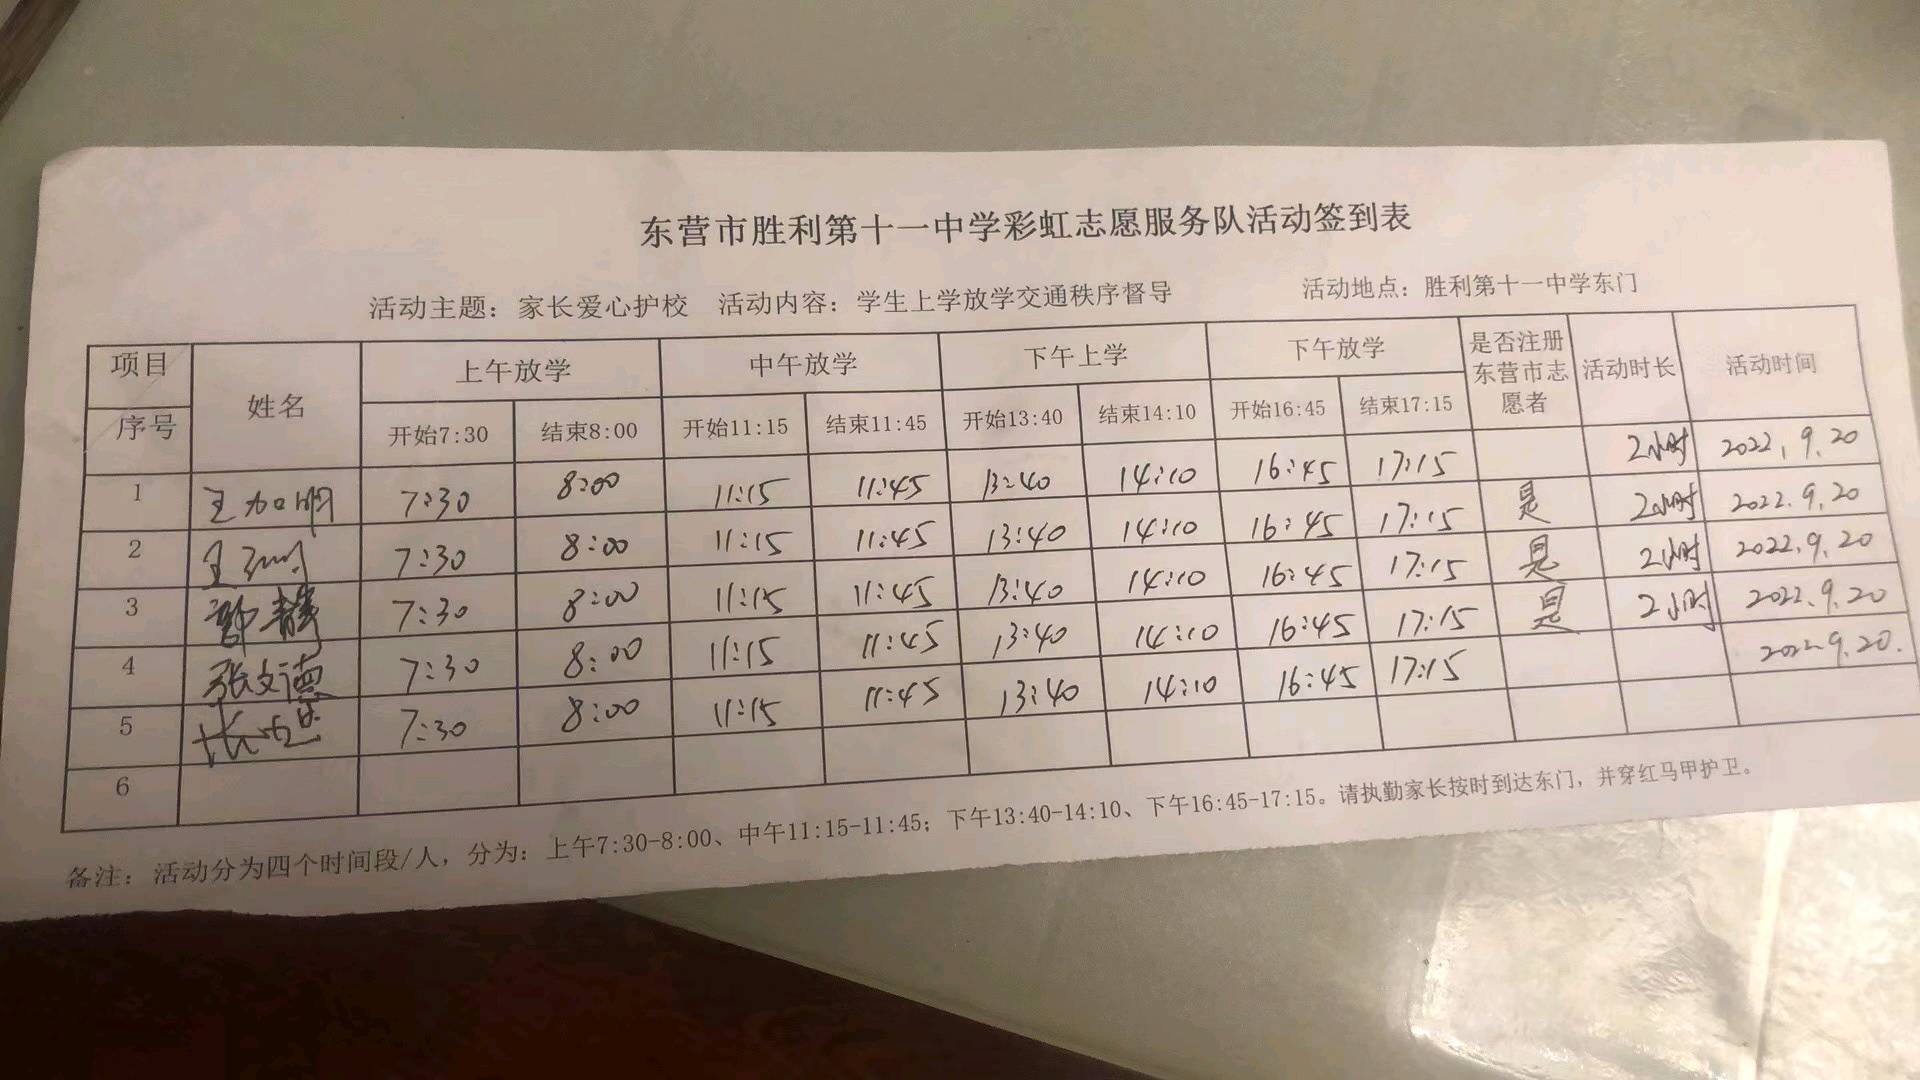 东营市胜利第十一中学彩虹志愿服务队活动签到表
活动主题：家长爱心护校 活动内容：学生上学放学交通秩序督导 活动地点：胜利第十一中学东门
项目 序号 姓名 上午放学 中午放学 下午上学 下午放学 是否注册东营市志愿者 活动时长 活动时间
开始7:30 结束8:00 开始11:15 结束11:45 开始13:40 结束14:10 开始16:45 结束17:15
1 王加明 7:30 8:00 11:15 11:45 13:40 14:10 16:45 17:15 2小时 2022.9.20
2 7:30 8:00 11:15 11:45 13:40 14:10 16:45 17:15 是 2小时 2022.9.20
3 郭静 7:30 8:00 11:15 11:45 13:40 14:10 16:45 17:15 是 2小时 2022.9.20
4 张文德 7:30 8:00 11:15 11:45 13:40 14:10 16:45 17:15 是 2小时 2022.9.20
5 7:30 8:00 11:15 11:45 13:40 14:10 16:45 17:15 2022.9.20.
6
备注：活动分为四个时间段/人，分为：上午7:30-8:00、中午11:15-11:45；下午13:40-14:10、下午16:45-17:15。请执勤家长按时到达东门，并穿红马甲护卫。